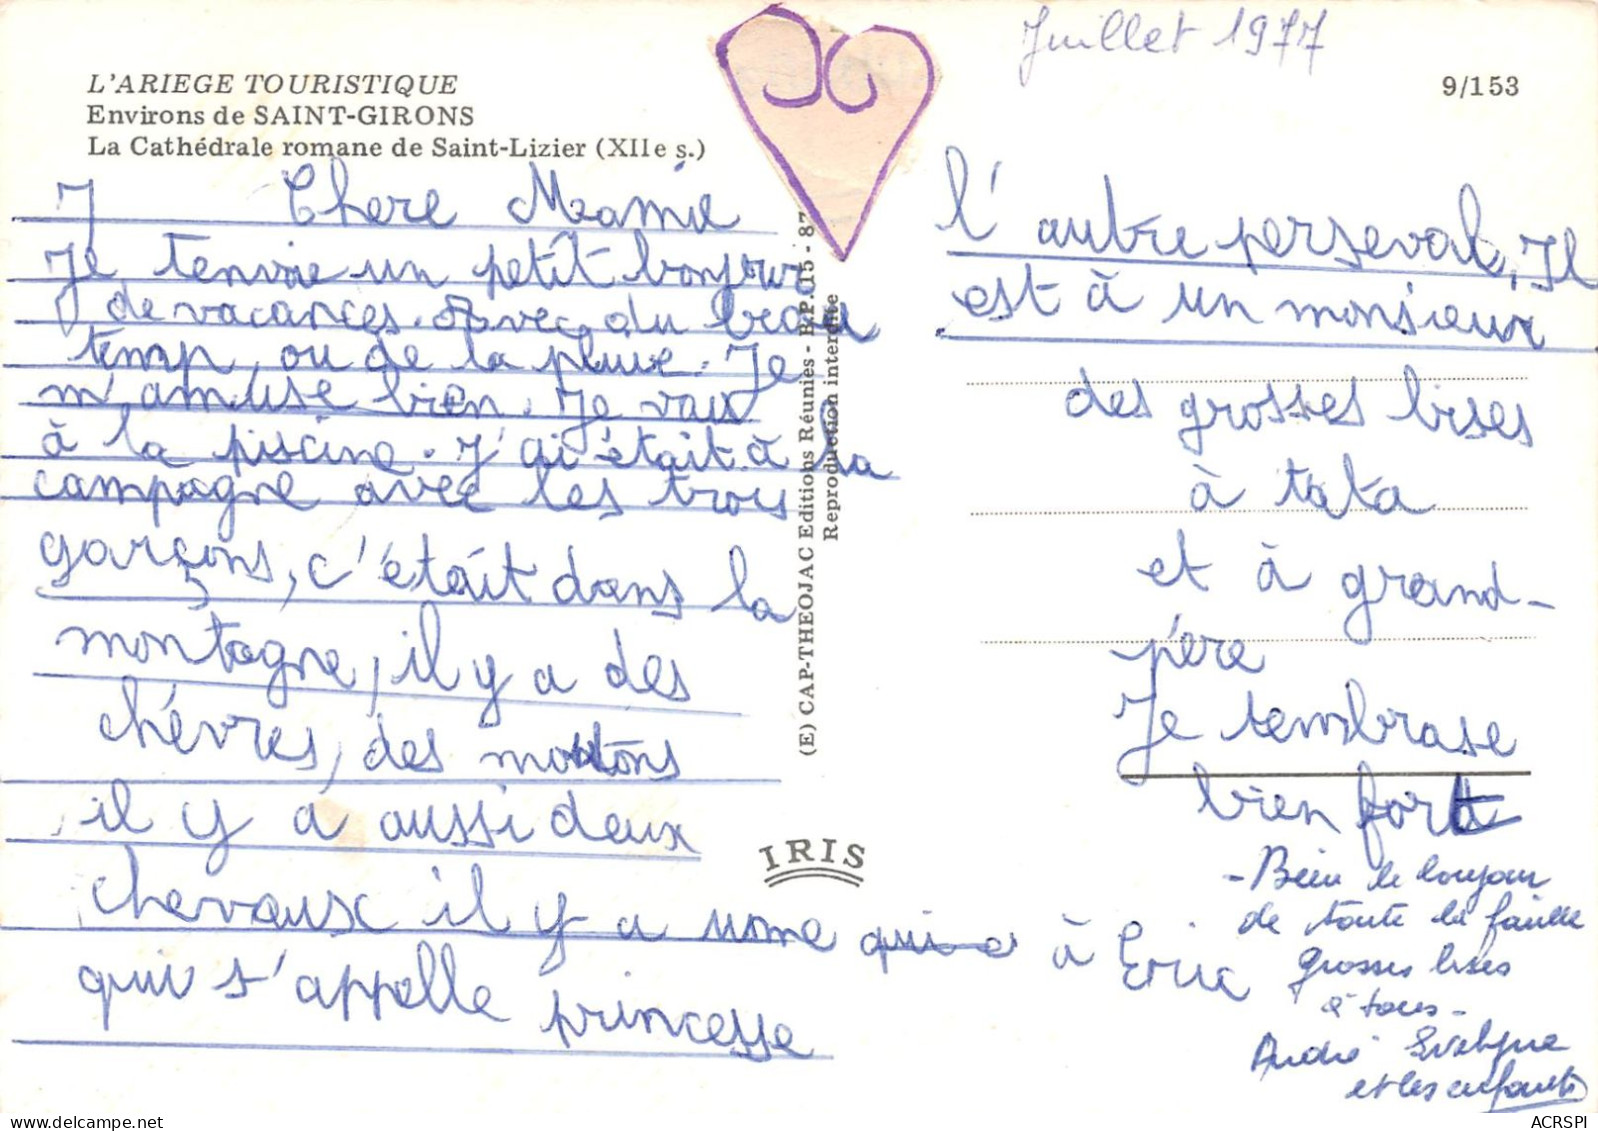 Juillet 1977
L'ARIEGE TOURISTIQUE
9/153
Environs de SAINT-GIRONS
La Cathédrale romane de Saint-Lizier (XIIe s.)
J Chere Mamie
Je tenvoie un petit bonjour
de vacances. avec du beau
temp, ou de la pluie. Je
m'amuse bien. Je vais
à la piscine. J'ai était à la
campagne avec les trois
garçons, c'était dans la
montagne, il y a des
chévres, des moutons
il y a aussi deux
chevaux il y a une qui e à Eric
qui s'appelle princesse
l'autre perseval, Il
est à un monsieur
des grosses bises
à tata
et à grand-
père
Je tembrasse
bien fort
- Bien le bonjour
de toute la famille
grosses bises
à tous -
André Evelyne
et les enfants
(E) CAP-THEOJAC Editions Réunies - B.P. 115 - 87
Reproduction interdite
IRIS
ACRSPI